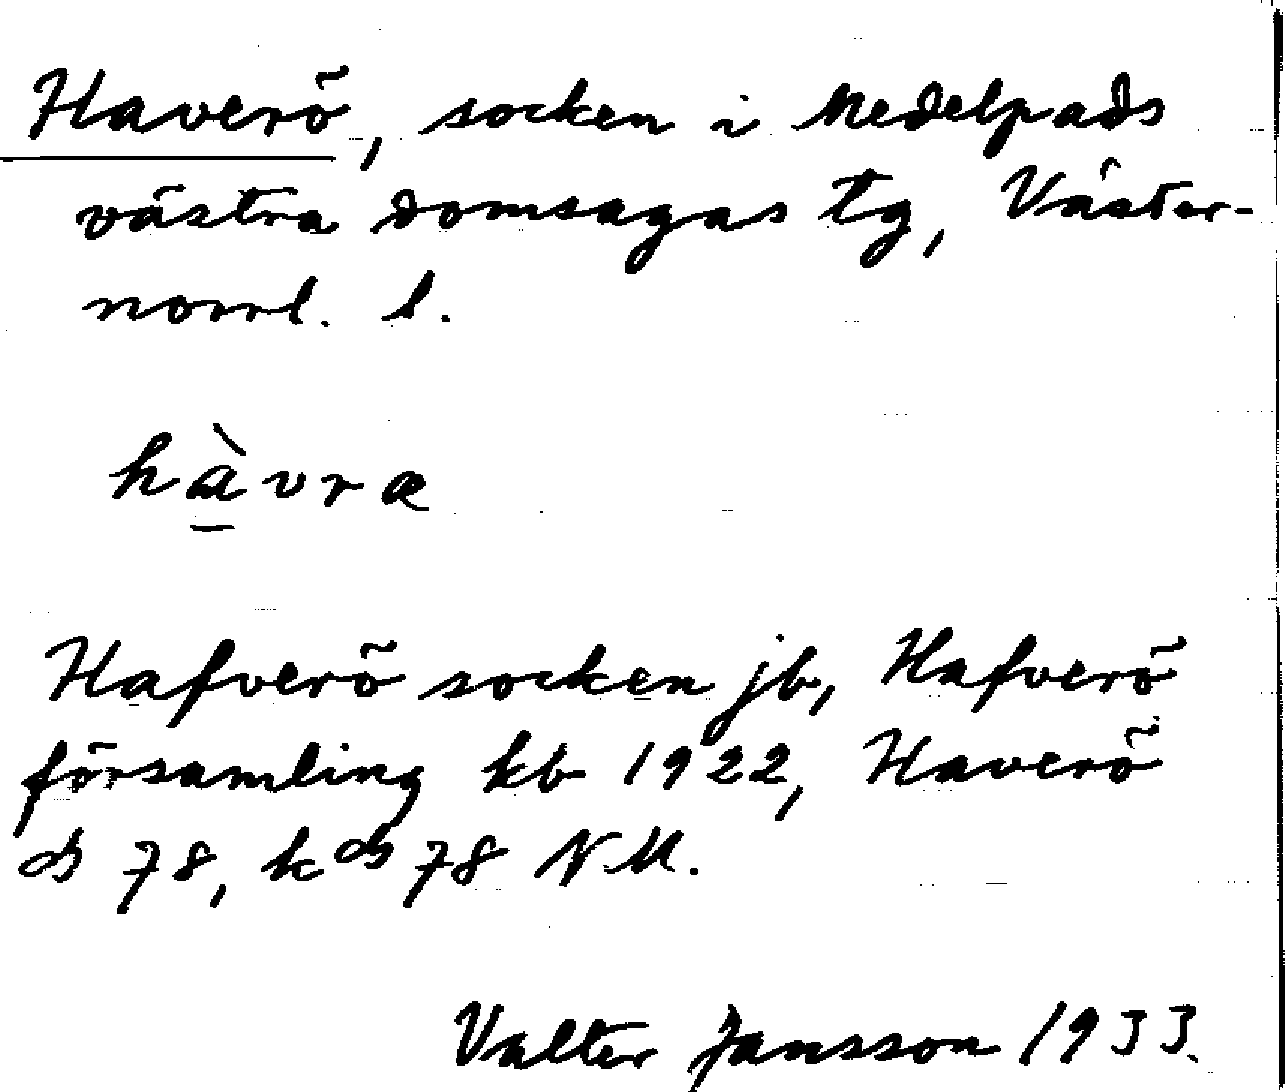 Haverö, socken i Medelpads
västra domsagas tg, Väster-
norrl. l.
hàvræ
Hafverö socken jb, Hafverö
församling kb 1922, Haverö
ds 78, k ds 78 NM.
Valter Jansson 1933.